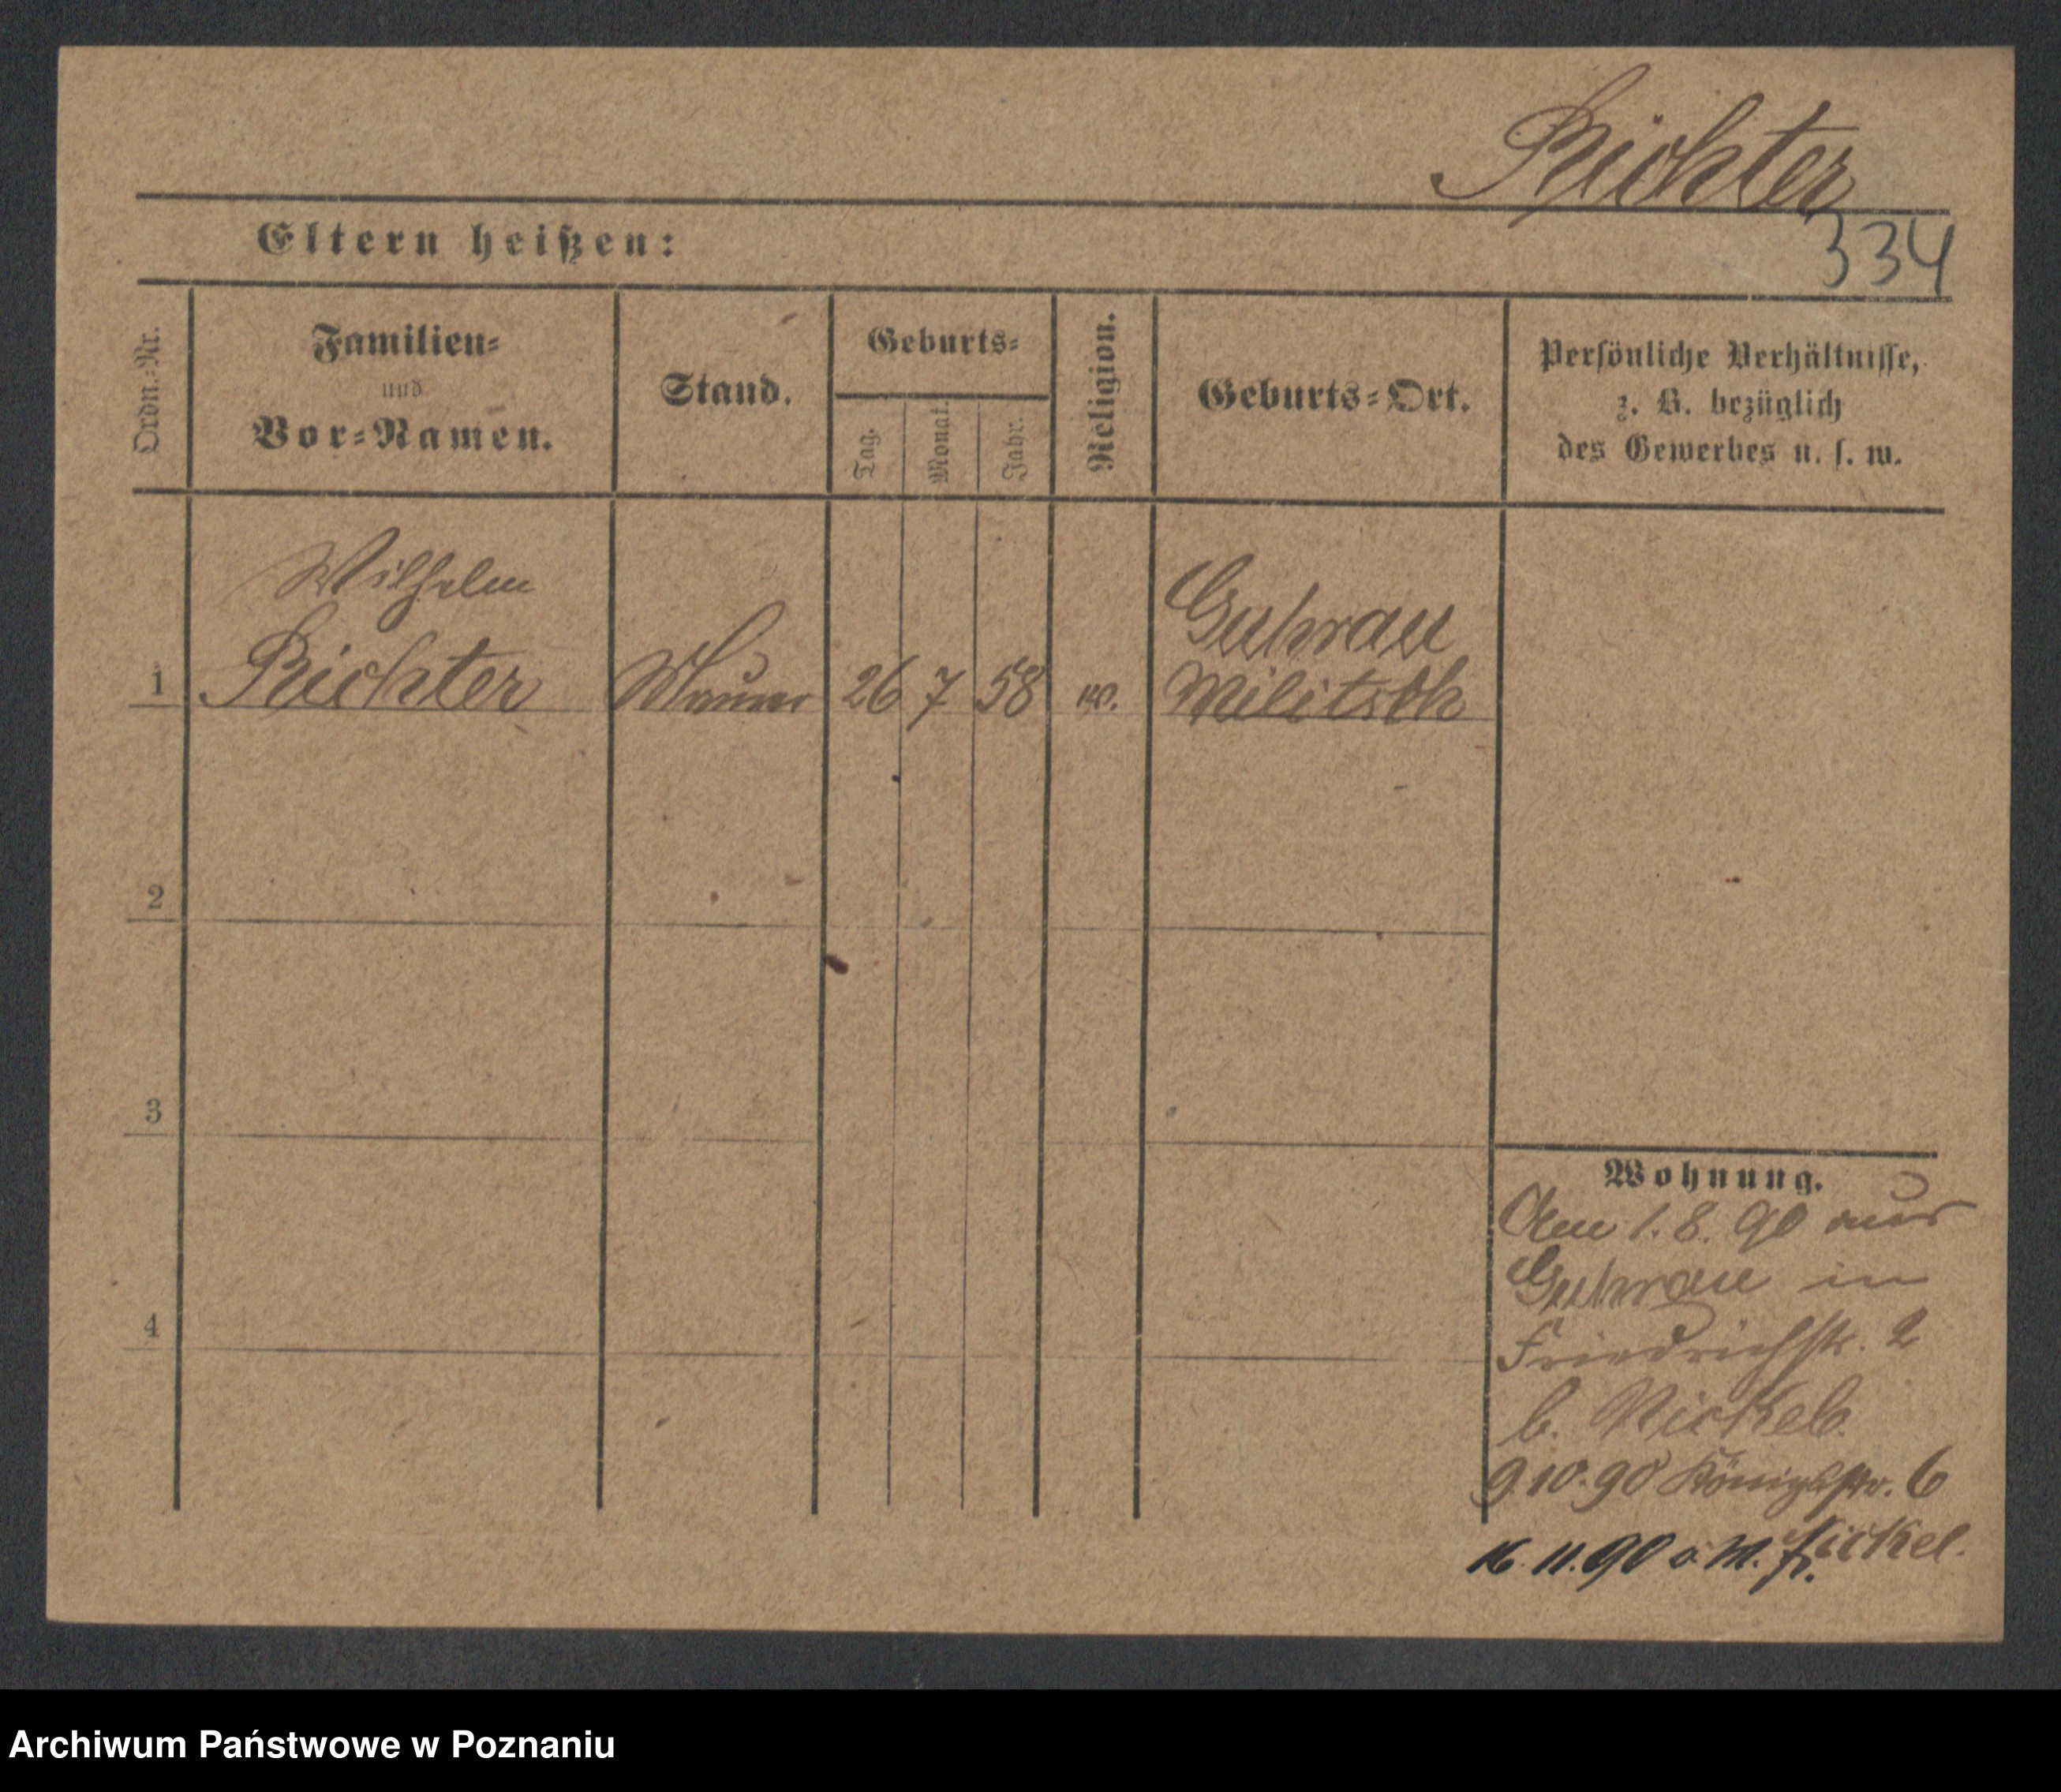 Richter
334
Eltern heißen:
Ordn.-Nr.
Familien-
und
Vor-Namen.
Stand.
Geburts-
Tag.
Monat.
Jahr.
Religion.
Geburts-Ort.
Persönliche Verhältnisse,
z. B. bezüglich
des Gewerbes u. s. w.
Wilhelm
1 Richter Maurer 26 7 58 Guhrau
Militsch
2
3
4
Wohnung.
Am 1. 8. 90 aus
Guhrau in
Friedrichstr. 2
b. Nickel.
9.10.90 Königsstr. 6
Nickel.
16. 11. 90
Archiwum Państwowe w Poznaniu